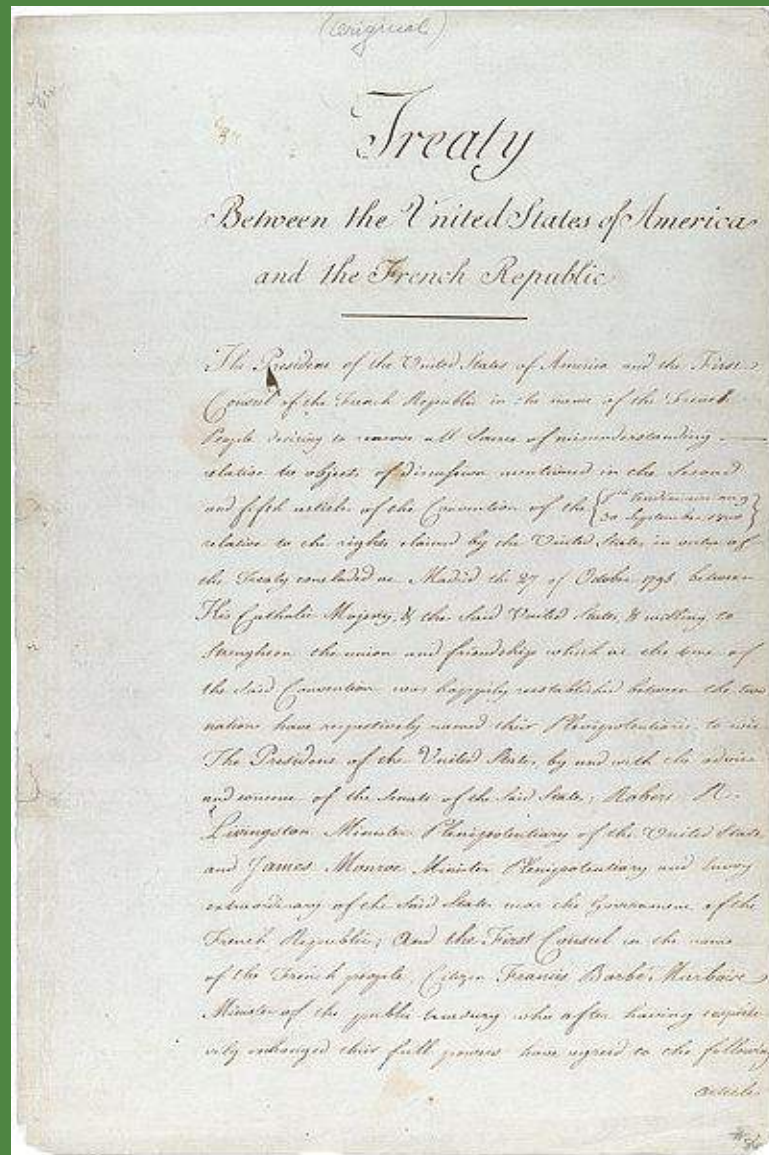 (Original)
Treaty
Between the United States of America
and the French Republic
The President of the United States of America and the First
Consul of the French Republic in the name of the French
People desiring to remove all Source of misunderstanding
relative to objects of discussion mentioned in the Second
and fifth articles of the Convention of the { 8th Vendemiaire an 9
30 September 1800 }
relative to the rights claimed by the United States in virtue of
the Treaty concluded at Madrid the 27 of October 1795, between
His Catholic Majesty, & the Said United States, & willing to
Strengthen the union and friendship which at the time of
the Said Convention was happily reestablished between the two
nations have respectively named their Plenipotentiaries to wit
The President of the United States, by and with the advice
and consent of the Senate of the Said States; Robert R.
Livingston Minister Plenipotentiary of the United States
and James Monroe Minister Plenipotentiary and Envoy
extraordinary of the Said States near the Government of the
French Republic; And the First Consul in the name
of the French people, Citizen Francis Barbé Marbois
Minister of the public treasury who after having respecti-
vely exchanged their full powers have agreed to the following
articles